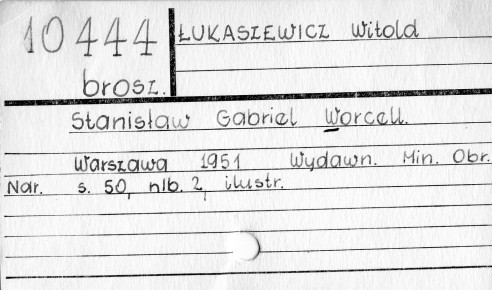 10444 ŁUKASZEWICZ Witold
brosz.
Stanisław Gabriel Worcell.
Warszawa 1951 Wydawn. Min. Obr.
Nar. s. 50, nlb. 2, ilustr.